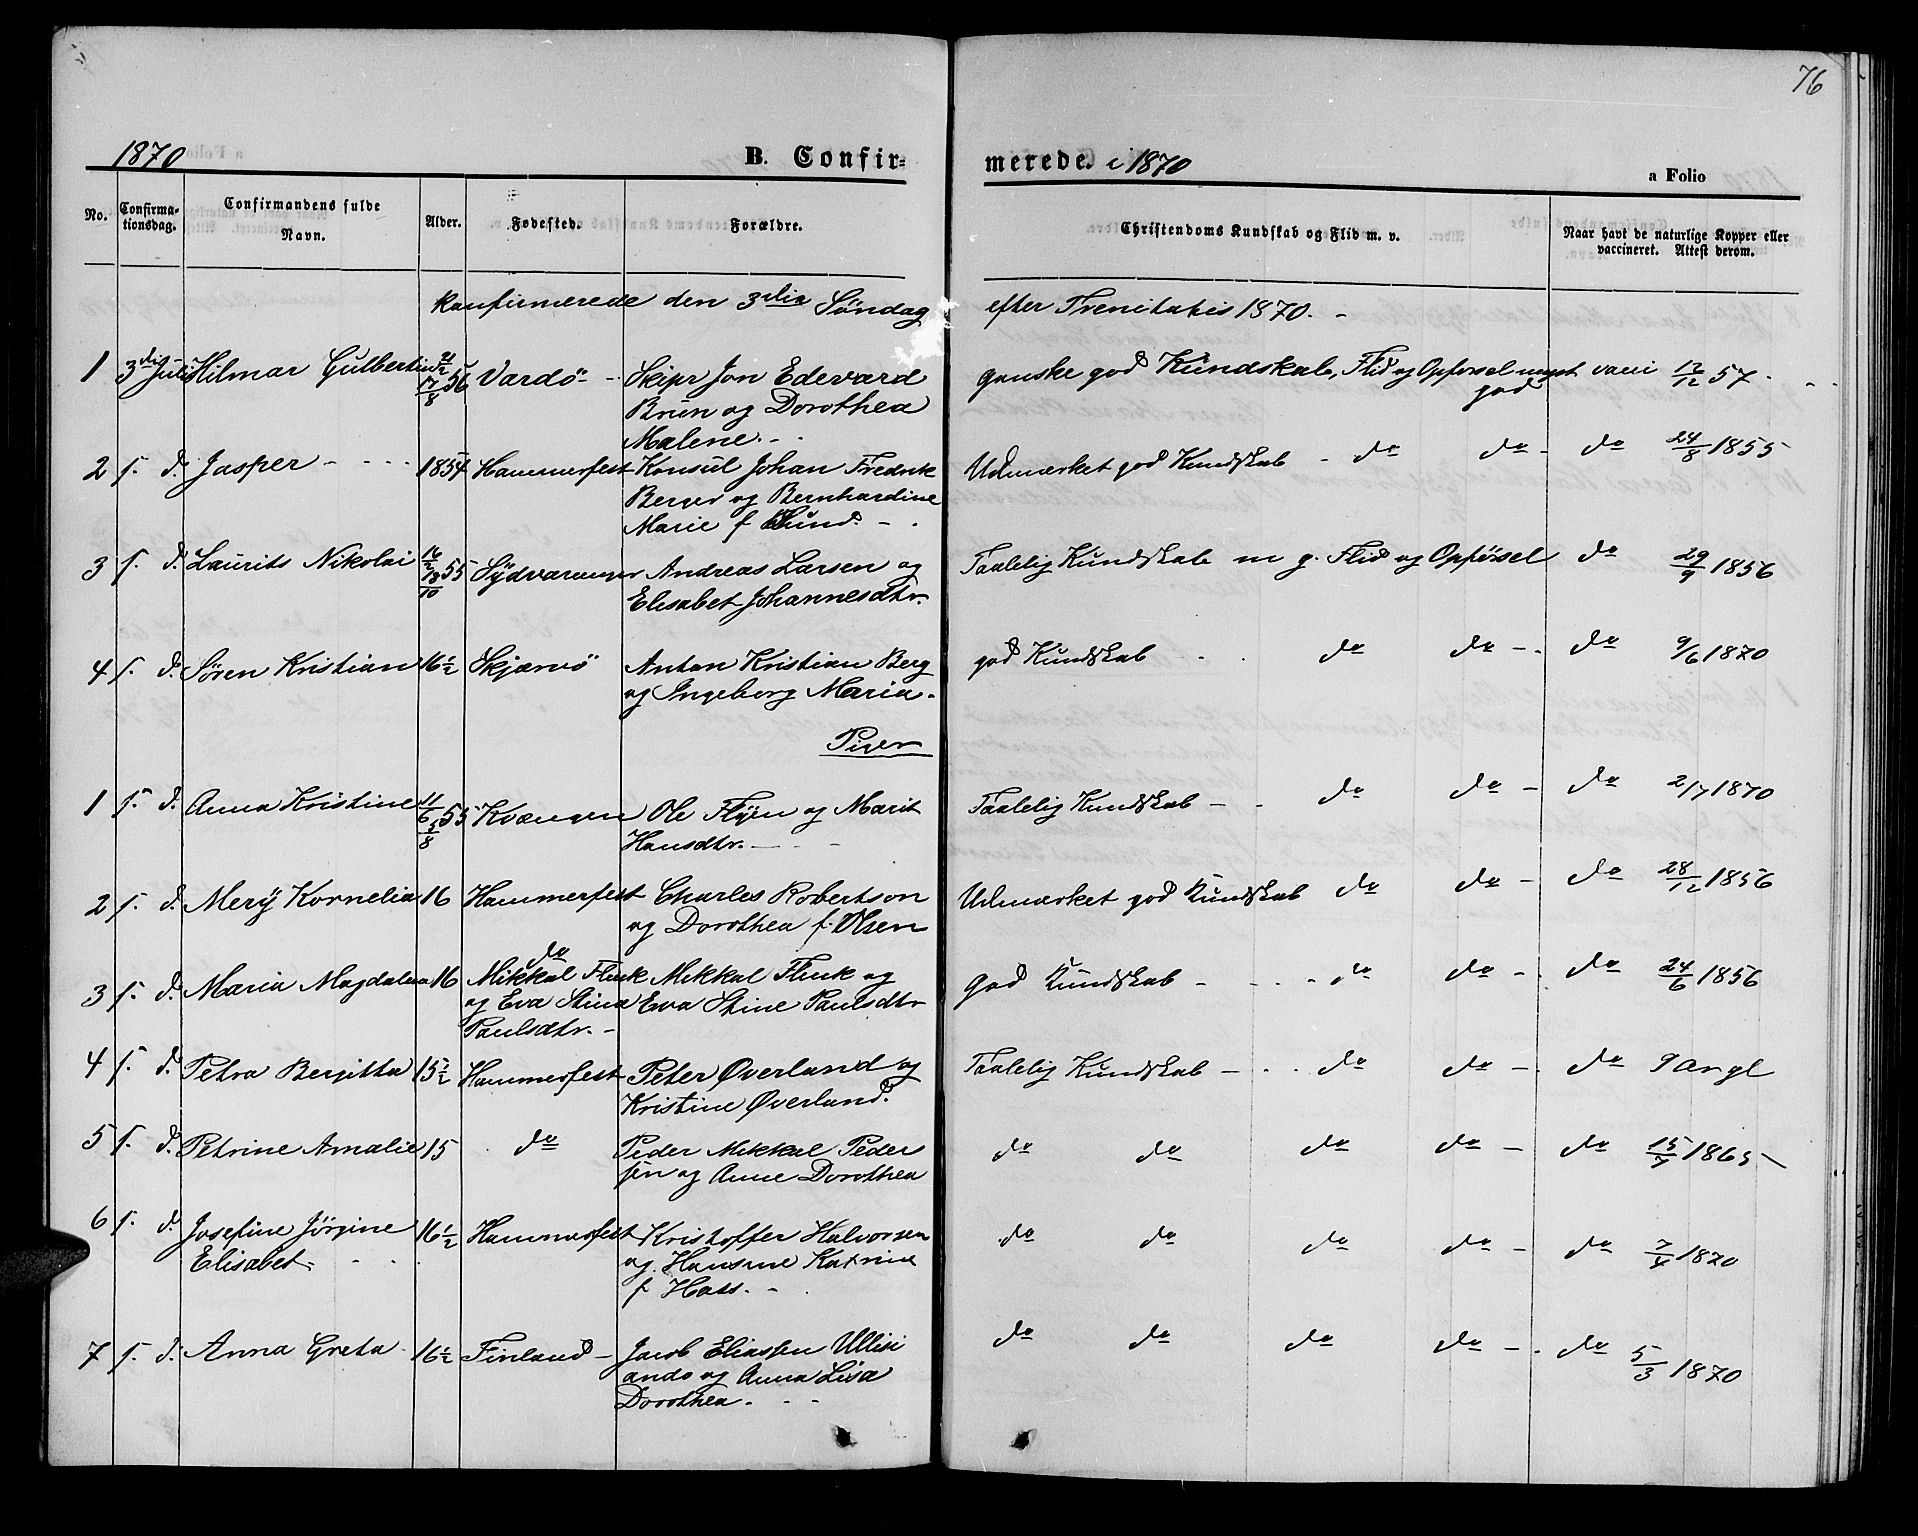 76
1870 B. Confirmerede. i 1870 a Folio
No. Confirmationsdag. Confirmandens fulde Navn. Alder. Fødested. Forældre. Christendoms Kundskab og Flid m. v. Naar havt de naturlige Kopper eller vaccineret. Attest derom.
konfirmerede den 3die Söndag efter Trenitatis 1870. -
1 3die Juli Hilmar 17/8 56 Vardö - Skipr Jon Edevard ganske god Kundskab, Flid og Opførsel meget vacc 12/12 57.
Brun og Dorothea god
Malene. -
2 s. d. Jasper - - - 1854 Hammerfest Konsul Johan Fredrik Udmærket god Kundskab - do do - do 24/8 1855
Berger og Bernhardine
Marie f Lund. -
3 s. d. Laurits Nikolai 13/10 55 Sydvaranger Andreas Larsen og Taalelig Kundskab m g. Flid og Opförsel do 29/9 1856
Elisabet Johannesdtr.
4 s. d. Sören Kristian 16 1/2 Skjærvö Anton Kristian Berg god Kundskab - do do - do 9/6 1870
og Ingeborg Maria.
Piger
1 s. d. Anna Kristine 55 Kvængen Ole Flyen og Marit Taalelig Kundskab - do do - do 2/7 1870
Hansdtr. -
2 s. d. Mery Kornelia 16 Hammerfest Charles Robertson Udmærket god Kundskab do do - do 28/12 1856
og Dorothea f. Olsen
3 s. d. Maria Magdalena 16 do Mikkal Fluk Mikkal Fluk og god Kundskab - do do - do 24/6 1856
og Eva Stina Eva Stine Paulsdtr
Paulsdtr. -
4 s. d. Petra Bergitta 15 1/2 Hammerfest Peter Øverland og Taalelig Kundskab - do do - do
Kristine Øverland.
5 s. d. Petrine Amalie 15 do Peder Mikkal Peder do do do do - do 15/7 1865 -
sen og Anne Dorothea
6 s. d. Josefine Jörgine 16 1/2 Hammerfest Kristoffer Halvorsen do do do do - do 7/4 1870
Elisabet. og Hansine Katrine
f Hass. -
7 s. d. Anna Greta 16 1/2 Finland - Jacob Eliassen Ullisi do do do do - do 5/3 1870
ando og Anna Lisa
Dorothea.